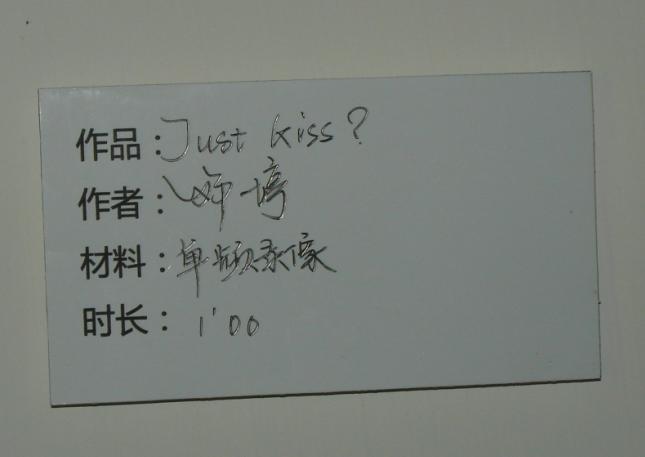 作品：Just kiss?
作者：婷
材料：单频录像
时长：1'00